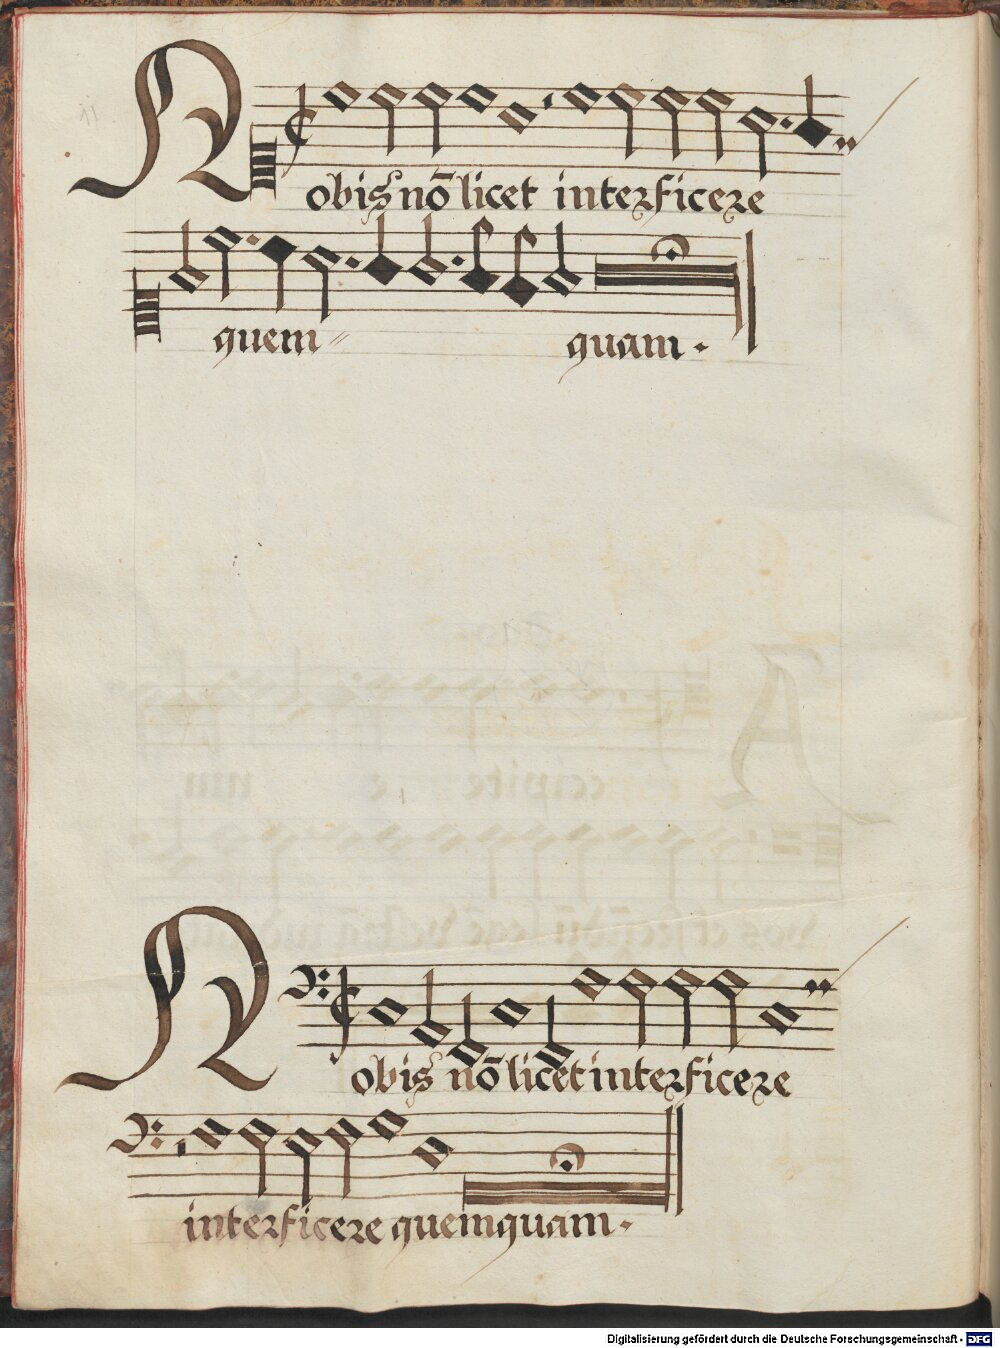 Nobis nō licet interficere
quem〃 quam.
Nobis nō licet interficere
interficere quemquam.
Digitalisierung gefördert durch die Deutsche Forschungsgemeinschaft - DFG